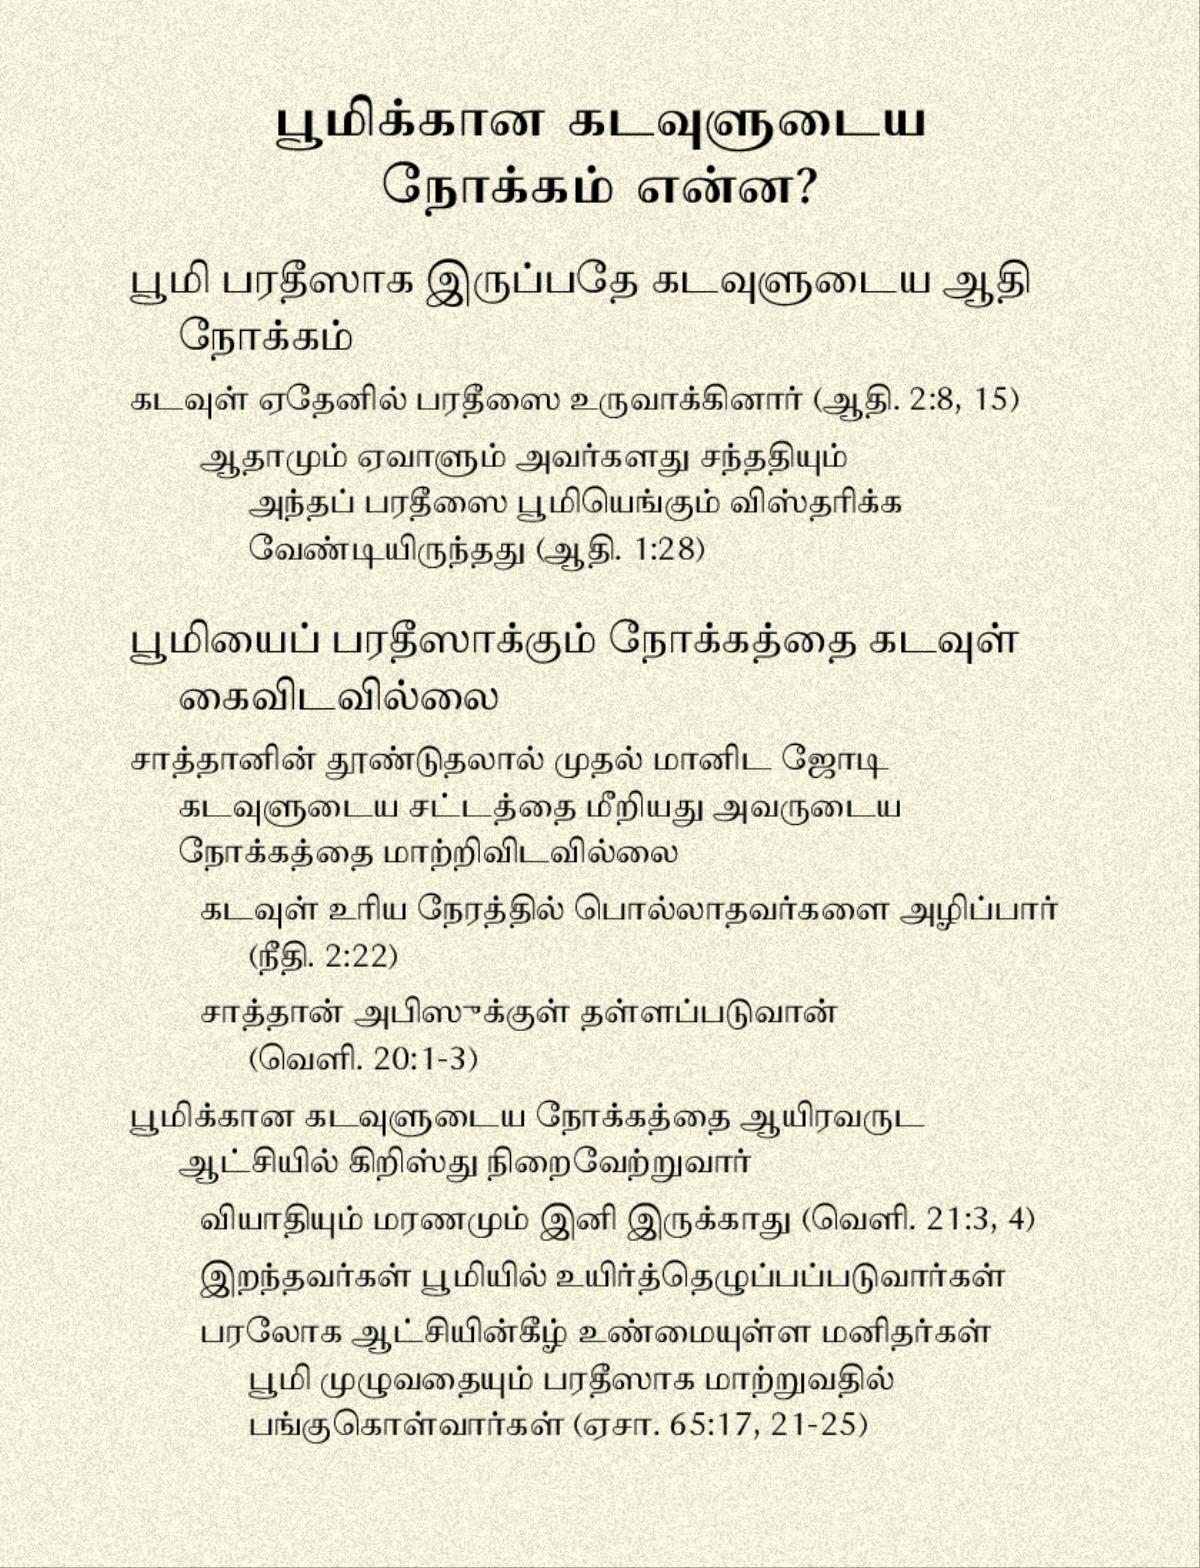 பூமிக்கான கடவுளுடைய
நோக்கம் என்ன?
பூமி பரதீஸாக இருப்பதே கடவுளுடைய ஆதி
நோக்கம்
கடவுள் ஏதேனில் பரதீஸை உருவாக்கினார் (ஆதி. 2:8, 15)
ஆதாமும் ஏவாளும் அவர்களது சந்ததியும்
அந்தப் பரதீஸை பூமியெங்கும் விஸ்தரிக்க
வேண்டியிருந்தது (ஆதி. 1:28)
பூமியைப் பரதீஸாக்கும் நோக்கத்தை கடவுள்
கைவிடவில்லை
சாத்தானின் தூண்டுதலால் முதல் மானிட ஜோடி
கடவுளுடைய சட்டத்தை மீறியது அவருடைய
நோக்கத்தை மாற்றிவிடவில்லை
கடவுள் உரிய நேரத்தில் பொல்லாதவர்களை அழிப்பார்
(நீதி. 2:22)
சாத்தான் அபிஸுக்குள் தள்ளப்படுவான்
(வெளி. 20:1-3)
பூமிக்கான கடவுளுடைய நோக்கத்தை ஆயிரவருட
ஆட்சியில் கிறிஸ்து நிறைவேற்றுவார்
வியாதியும் மரணமும் இனி இருக்காது (வெளி. 21:3, 4)
இறந்தவர்கள் பூமியில் உயிர்த்தெழுப்பப்படுவார்கள்
பரலோக ஆட்சியின்கீழ் உண்மையுள்ள மனிதர்கள்
பூமி முழுவதையும் பரதீஸாக மாற்றுவதில்
பங்குகொள்வார்கள் (ஏசா. 65:17, 21-25)